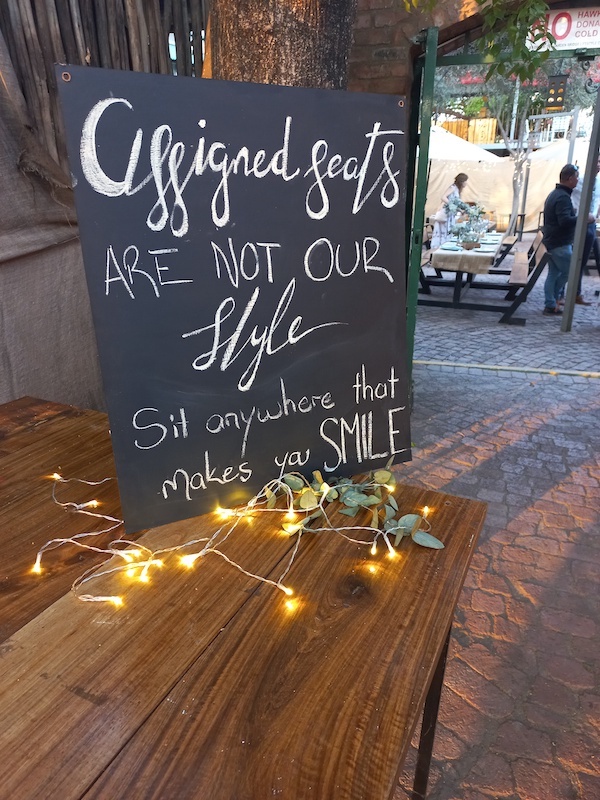 Assigned seats
ARE NOT OUR
Style
Sit anywhere that
makes you SMILE
NO
HAWK
DONA
COLD